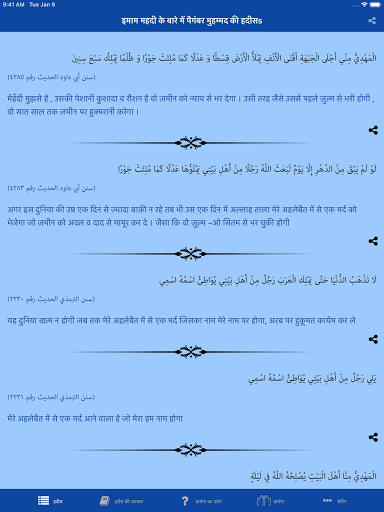 9:41 AM Tue Jan 9
इमाम महदी के बारे में पैगंबर मुहम्मद की हदीसs
الْمَهْدِيُّ مِنِّي أَجْلَى الْجَبْهَةِ أَقْنَى الْأَنْفِ يَمْلَأُ الْأَرْضَ قِسْطًا وَ عَدْلًا كَمَا مُلِئَتْ جَوْرًا وَ ظُلْمًا يَمْلِكُ سَبْعَ سِنِينَ
(سنن أبي داود الحديث رقم ٤٢٨٥)
मेहेंदी मुझसे है , उसकी पेशानी कुशादा व रौशन है वो ज़मीन को न्याय से भर देगा । उसी तरह जैसे उससे पहले ज़ुल्म से भरी होगी ,
वो सात साल तक ज़मीन पर हुक्मरानी करेगा ।
لَوْ لَمْ يَبْقَ مِنْ الدَّهْرِ إِلَّا يَوْمٌ لَبَعَثَ اللَّهُ رَجُلًا مِنْ أَهْلِ بَيْتِي يَمْلَؤُهَا عَدْلًا كَمَا مُلِئَتْ جَوْرًا
(سنن أبي داود الحديث رقم ٤٢٨٣)
अगर इस दुनिया की उम्र एक दिन से ज़्यादा बाक़ी न रहे तब भी उस एक दिन में अल्लाह ताला मेरे अहलेबैत में से एक मर्द को
भेजेगा जो ज़मीन को अदल व दाद से मामूर कर दे । जैसा कि वो ज़ुल्म –ओ सितम से भर चुकी होगी
لَا تَذْهَبُ الدُّنْيَا حَتَّى يَمْلِكَ الْعَرَبَ رَجُلٌ مِنْ أَهْلِ بَيْتِي يُوَاطِئُ اسْمُهُ اسْمِي
(سنن الترمذي الحديث رقم ٢٢٣٠)
यह दुनिया खत्म न होगी जब तक मेरे अहलेबैत में से एक मर्द जिसका नाम मेरे नाम पर होगा, अरब पर हुकूमत कायेम कर ले
يَلِي رَجُلٌ مِنْ أَهْلِ بَيْتِي يُوَاطِئُ اسْمُهُ اسْمِي
(سنن الترمذي الحديث رقم ٢٢٣١)
मेरे अहलेबैत में से एक मर्द आने वाला है जो मेरा हम नाम होगा
الْمَهْدِيُّ مِنَّا أَهْلَ الْبَيْتِ يُصْلِحُهُ اللَّهُ فِي لَيْلَةٍ
हदीस
हदीस की व्याख्या